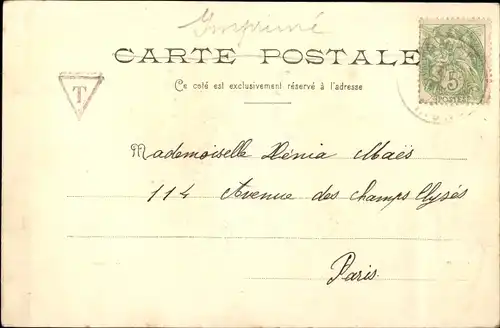 Imprimé
CARTE POSTALE
Ce coté est exclusivement réservé à l'adresse
T
5
POSTES
Mademoiselle Xénia Maës
114 Avenue des champs Elysés
Paris.